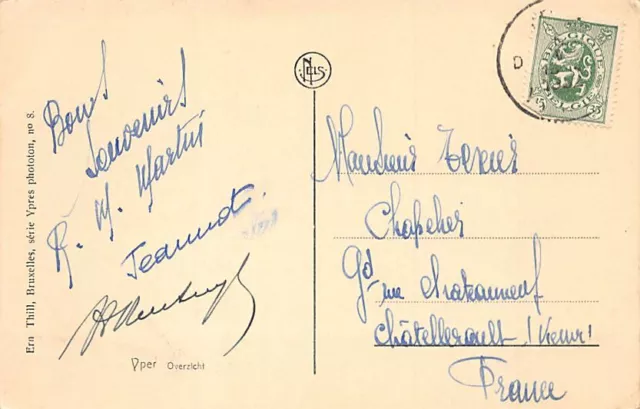 Ern Thill, Bruxelles, série Ypres phototon, no 8.
Bons
Souvenirs
R. M. Martin
Jeannot
Yper Overzicht
NELS
BELGIQUE
BELGIË
35
Monsieur
Chapelier
Gde rue Chateauneuf
Châtellerault (Vienne)
France